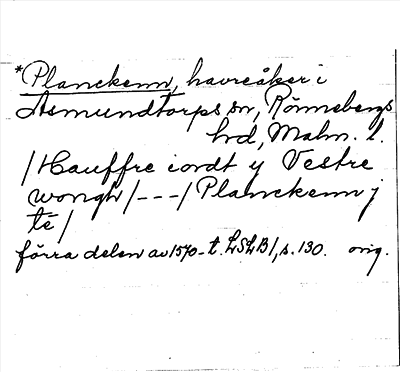 *Planckenn, havreåker i
Asmundtorps sn, Rönnebergs
hd, Malm. l.
/Hauffre iordt y Vestre
wongh/---/Planckenn j
te/
förra delen av 1570-t. LSLB1, s. 130. orig.